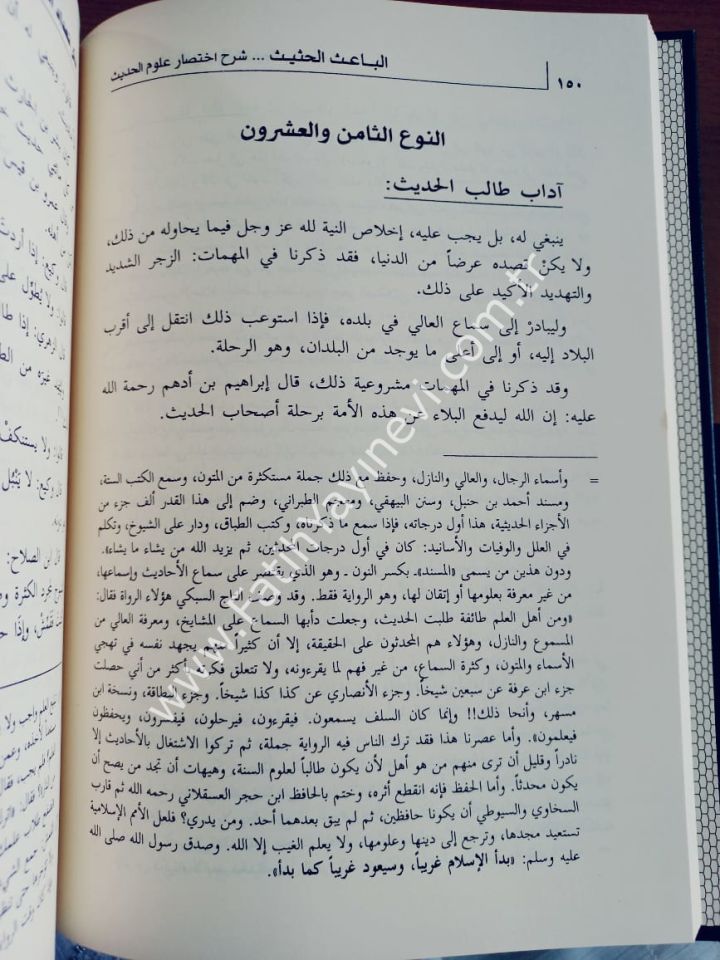 ١٥٠
الباعث الحثيث ... شرح اختصار علوم الحديث
النوع الثامن والعشرون
آداب طالب الحديث:
ينبغي له، بل يجب عليه، إخلاص النية لله عز وجل فيما يحاوله من ذلك،
ولا يكنْ قصده عرضاً من الدنيا، فقد ذكرنا في المهمات: الزجر الشديد
والتهديد الأكيد على ذلك.
وليبادرْ إلى سماع العالي في بلده، فإذا استوعب ذلك انتقل إلى أقرب
البلاد إليه، أو إلى أعلى ما يوجد من البلدان، وهو الرحلة.
وقد ذكرنا في المهمات مشروعية ذلك، قال إبراهيم بن أدهم رحمة الله
عليه: إن الله ليدفع البلاء عن هذه الأمة برحلة أصحاب الحديث.
= وأسماء الرجال، والعالي والنازل، وحفظ مع ذلك جملة مستكثرة من المتون، وسمع الكتب الستة،
ومسند أحمد بن حنبل، وسنن البيهقي، ومعجم الطبراني، وضم إلى هذا القدر ألف جزء من
الأجزاء الحديثية، هذا أول درجاته، فإذا سمع ما ذكرناه، وكتب الطباق، ودار على الشيوخ، وتكلم
في العلل والوفيات والأسانيد: كان في أول درجات المحدثين، ثم يزيد الله من يشاء ما يشاء».
ودون هذين من يسمى «المسند». بكسر النون ـ وهو الذي يقتصر على سماع الأحاديث وإسماعها،
من غير معرفة بعلومها أو إتقان لها، وهو الرواية فقط. وقد وصف التاج السبكي هؤلاء الرواة فقال:
«ومن أهل العلم طائفة طلبت الحديث، وجعلت دأبها السماع على المشايخ، ومعرفة العالي من
المسموع والنازل، وهؤلاء هم المحدثون على الحقيقة، إلا أن كثيراً منهم يجهد نفسه في تهجي
الأسماء والمتون، وكثرة السماع، من غير فهم لما يقرءونه، ولا تتعلق فكرته بأكثر من أني حصلت
جزء ابن عرفة عن سبعين شيخاً. وجزء الأنصاري عن كذا كذا شيخاً. وجزء البطاقة، ونسخة ابن
مسهر، وأنحا ذلك!! وإنما كان السلف يسمعون. فيقرءون، فيرحلون، فيفسرون، ويحفظون
فيعلمون». وأما عصرنا هذا فقد ترك الناس فيه الرواية جملة، ثم تركوا الاشتغال بالأحاديث إلا
نادراً وقليل أن ترى منهم من هو أهل لأن يكون طالباً لعلوم السنة، وهيهات أن تجد من يصح أن
يكون محدثاً. وأما الحفظ فإنه انقطع أثره، وختم بالحافظ ابن حجر العسقلاني رحمه الله ثم قارب
السخاوي والسيوطي أن يكونا حافظين، ثم لم يبق بعدهما أحد. ومن يدري؟ فلعل الأمم الإسلامية
تستعيد مجدها، وترجع إلى دينها وعلومها، ولا يعلم الغيب إلا الله. وصدق رسول الله صلى الله
عليه وسلم: «بدأ الإسلام غريباً، وسيعود غريباً كما بدأ».
www.FatihYayinevi.com.tr